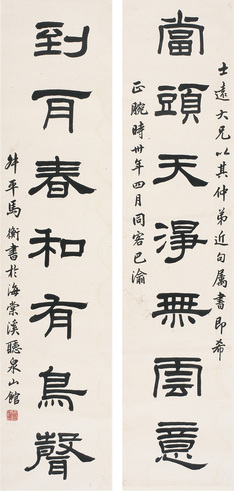 當頭天淨無雲意
士遠大兄以其仲弟近句属書即希
正腕時卅年四月同客巴渝
到耳春和有鳥聲
弟平馬衡書於海棠溪聽泉山館